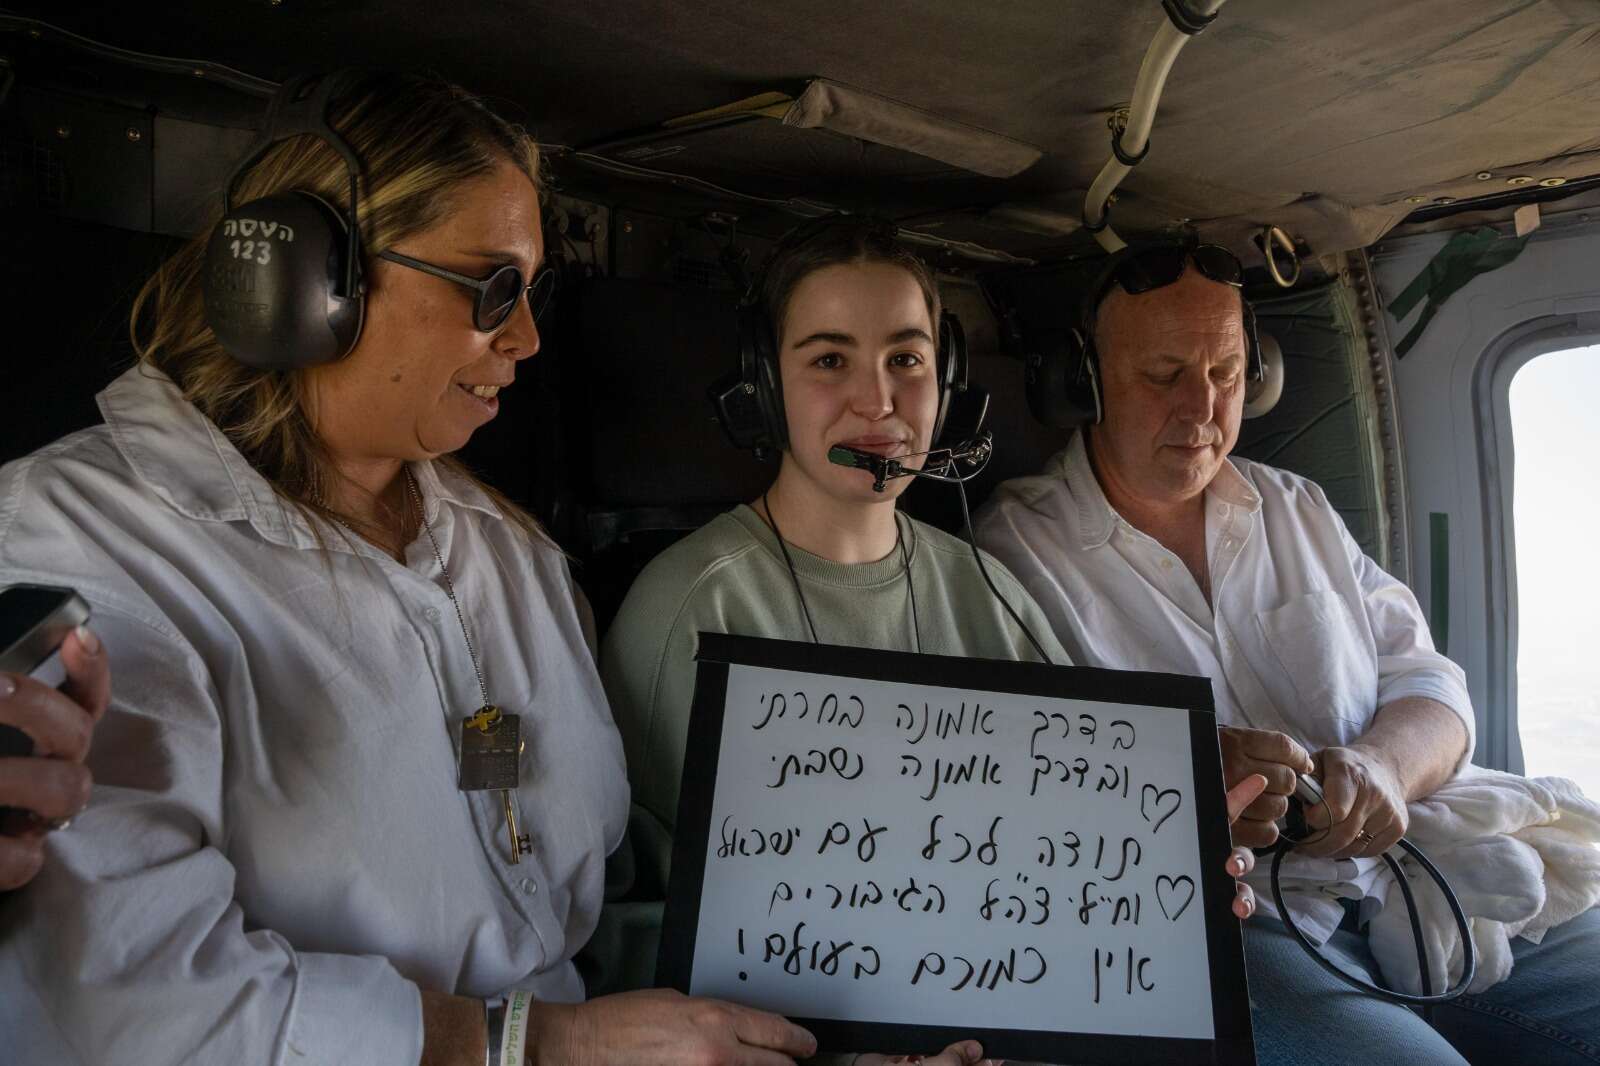 הטסה
123
בדרך אמונה בחרתי
ובדרך אמונה שבתי
תודה לכל עם ישראל
וחיילי צה"ל הגיבורים
אין כמוכם בעולם!